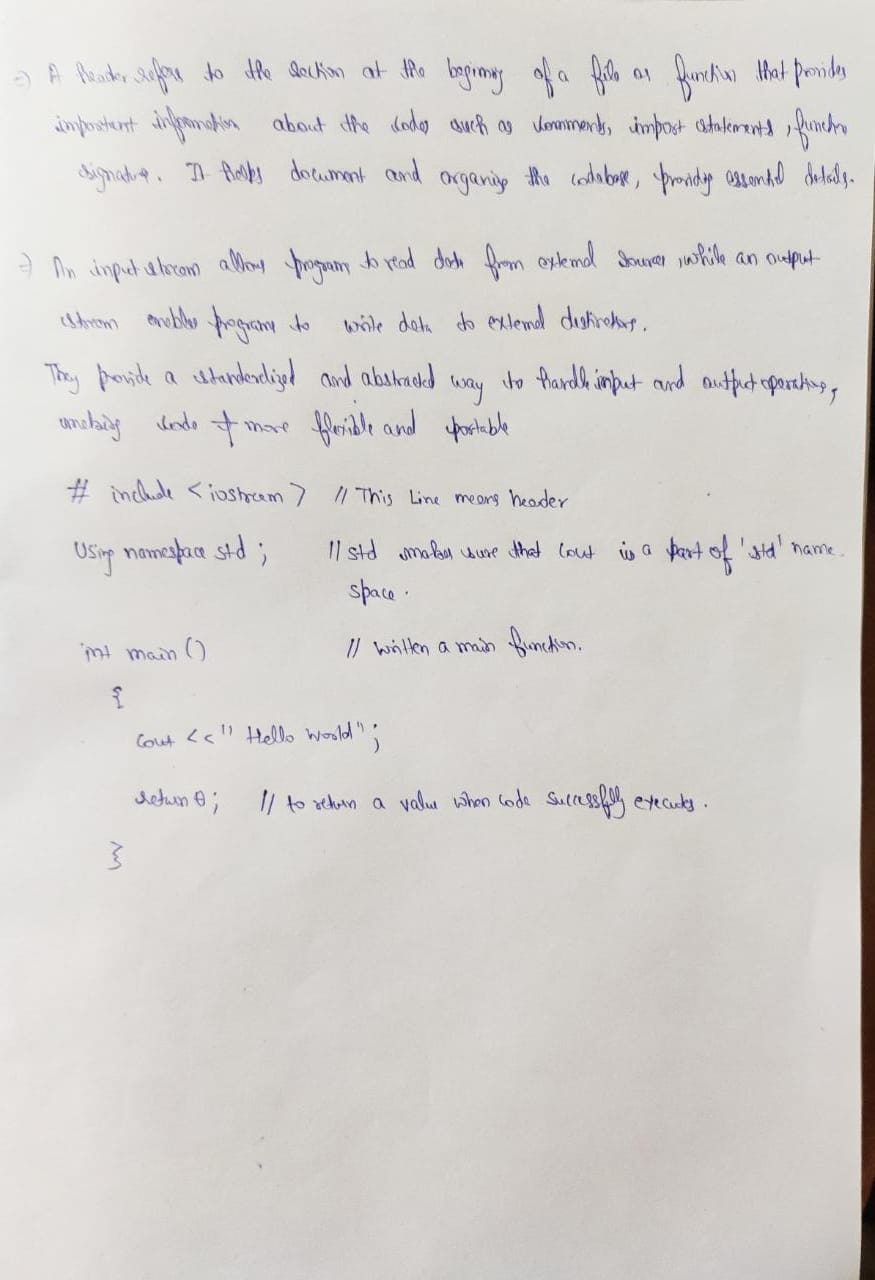 =) A header refers to the section at the beginning of a file or function that provides
important information about the code such as comments, import statements, function
signature. It helps document and organize the codebase, providing essential details.
=) An input stream allows program to read data from external sources, while an output
stream enables programs to write data to external destinations.
They provide a standardized and abstracted way to handle input and output operations,
making code more flexible and portable
# include <iostream> // This Line means header
Using namespace std ; // std makes sure that Cout is a part of 'std' name
space.
int main () // written a main function.
{
Cout <<" Hello World";
return 0; // to return a value when code Successfully executes.
}